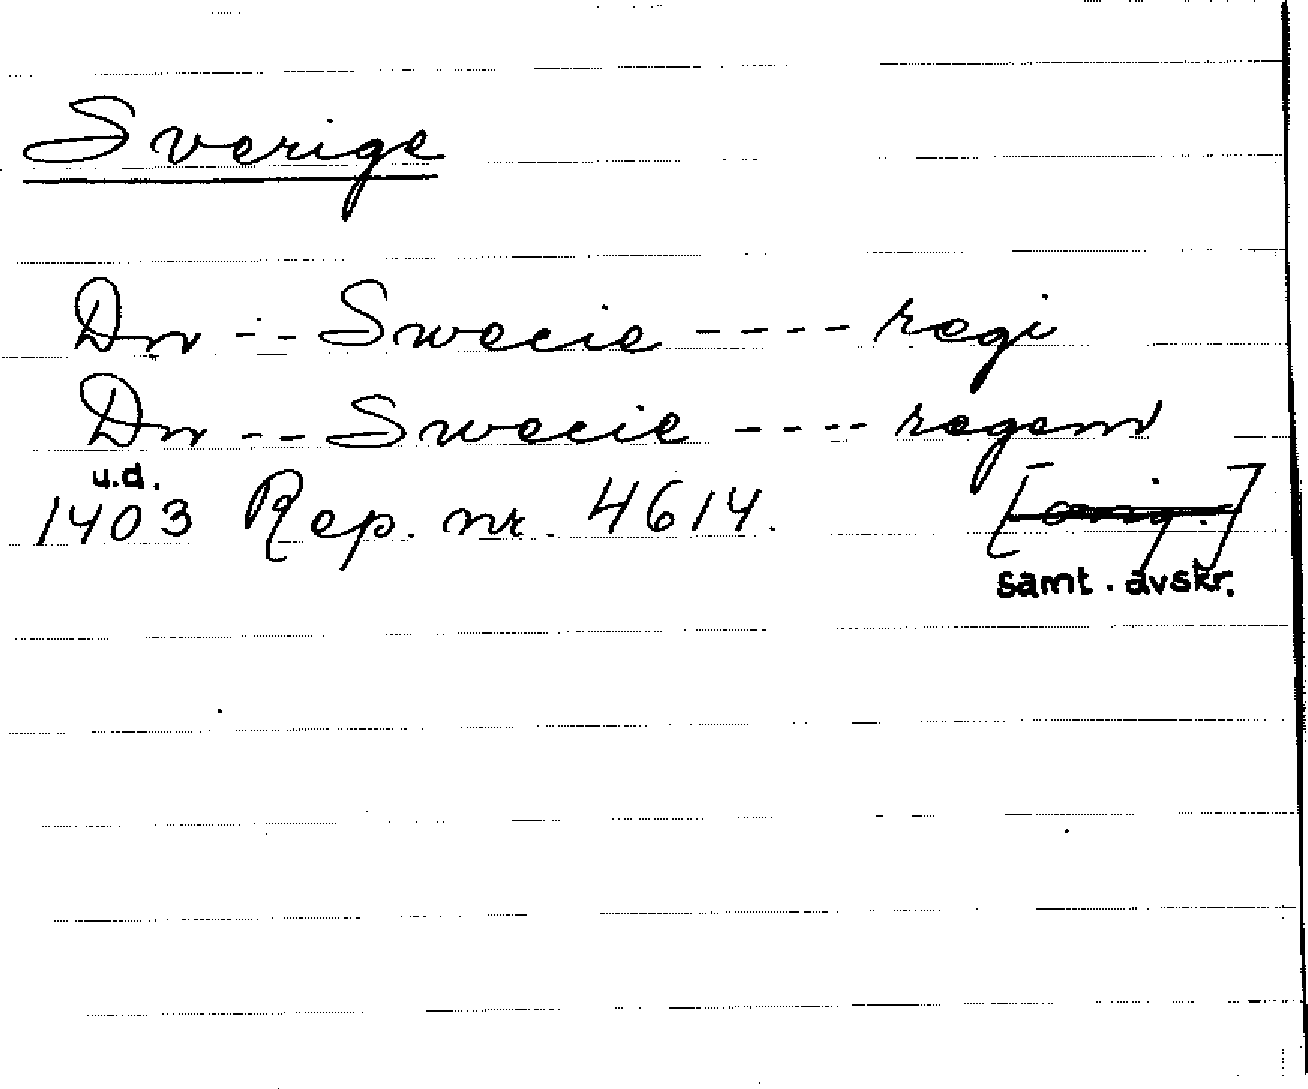 Sverige
Dn - - Swecie - - - - regi
Dn - - Swecie - - - - regem
u.d.
1403 Rep. nr. 4614. [orig.]
samt. avskr.